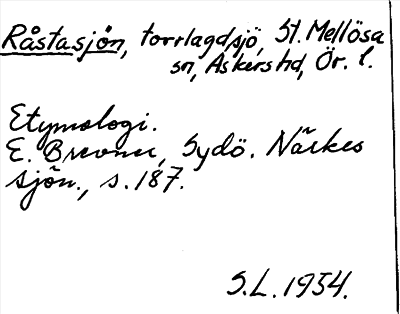 Råstasjön, torrlagd sjö, St. Mellösa
sn, Askers hd, Ör. l.
Etymologi.
E. Brevner, Sydö. Närkes
sjön., s. 187.
S.L. 1954.